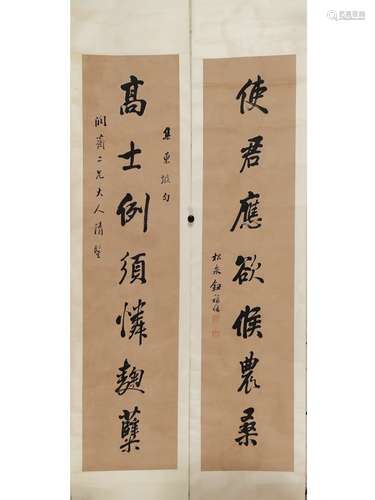 使君應欲候農桑
松泉鈕福保
集東坡句
高士例須憐麴蘖
二兄大人清鑒